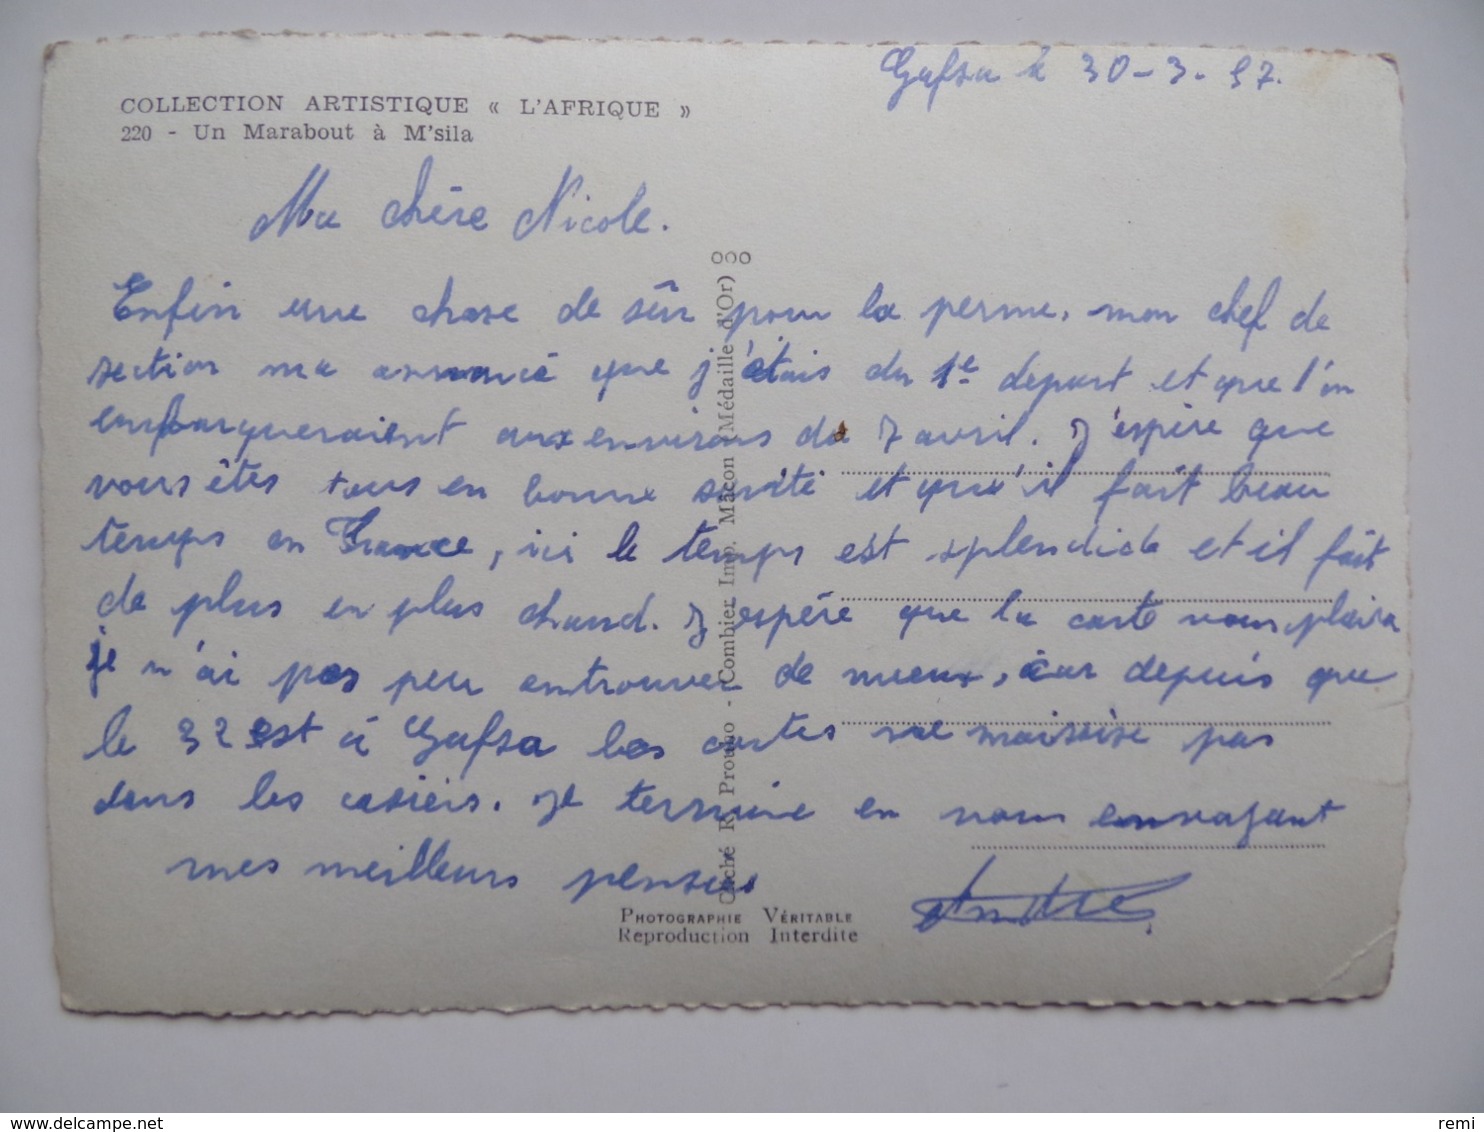 Gafsa le 30-3-57.
COLLECTION ARTISTIQUE « L'AFRIQUE »
220 - Un Marabout à M'sila
Ma chère Nicole.
Enfin une chose de sûr pour la perme, mon chef de
section ma annoncé que j'étais du 1e depart et que l'on
embarqueraient aux environs du 7 avril. J'espère que
vous êtes tous en bonne santé et qu'il fait beau
temps en France, ici le temps est splendide et il fait
de plus en plus chaud. J'espère que la carte vous plaira
je n'ai pas peu entrouver de mieux, car depuis que
le 32 est à Gafsa les cartes ne moisise pas
dans les casiers. Je termine en vous envoyant
mes meilleurs pensées
André
Cliché R. Prouho - (Combier Imp. Mâcon (Médaille d'Or)
PHOTOGRAPHIE VÉRITABLE
Reproduction Interdite
remi
delcampe.net